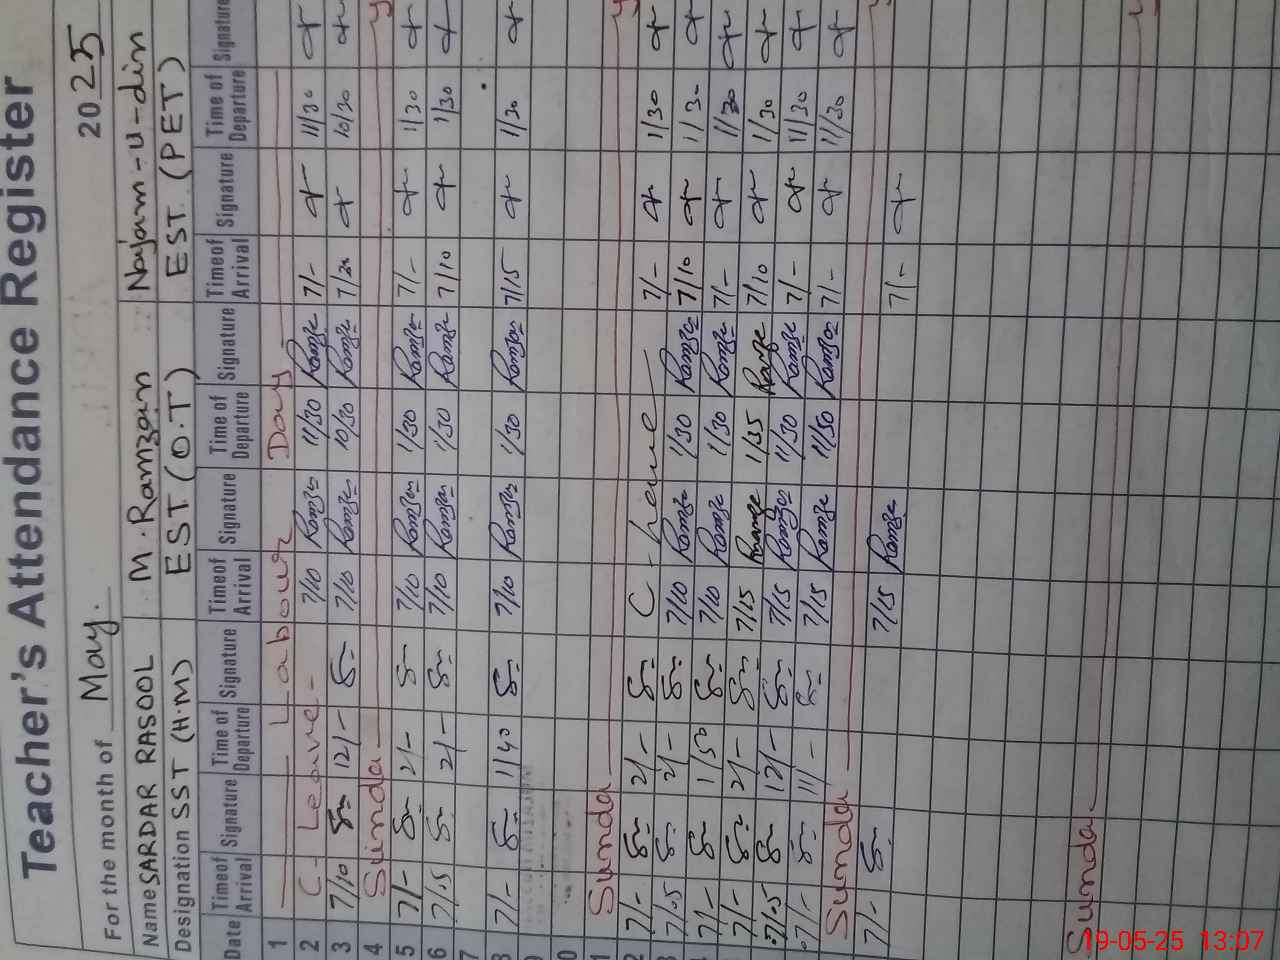 Teacher's Attendance Register
For the month of May. 2025
Name SARDAR RASOOL M. Ramzan Najam-u-din
Designation SST (H.M) EST (O.T) EST (PET)
Date Time of Arrival Signature Time of Departure Signature Time of Arrival Signature Time of Departure Signature Time of Arrival Signature Time of Departure Signature
1 Labour Day
2 C- Leave - 7/10 Ramzan 11/30 Ramzan 7/- 11/30
3 7/10 12/- 7/10 Ramzan 10/30 Ramzan 7/20 10/30
4 Sunda y
5 7/- 2/- 7/10 Ramzan 1/30 Ramzan 7/- 1/30
6 7/15 2/- 7/10 Ramzan 1/30 Ramzan 7/10 1/30
7
8 7/- 1/40 7/10 Ramzan 1/30 Ramzan 7/15 1/30
9
0
1 Sunda y
2 7/- 2/- C- leave 7/- 1/30
3 7/.5 2/- 7/10 Ramzan 1/30 Ramzan 7/10 11/30
7/- 1/50 7/10 Ramzan 1/30 Ramzan 7/- 11/30
7/- 2/- 7/15 Ramze 1/35 Ramze 7/10 1/30
7/.5 12/- 7/15 Ramzan 11/30 Ramzan 7/- 11/30
7/- 11/- 7/15 Ramzan 11/30 Ramzan 7/- 11/30
Sunda y
7/- 7/15 Ramzan 7/-
Sunda y
19-05-25 13:07